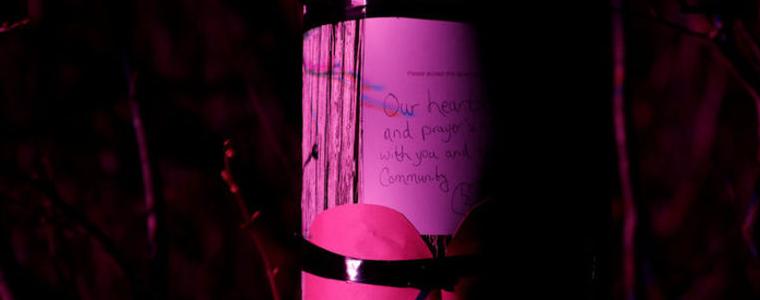 Please accept this
Our hearts
and prayer's
with you and
Community